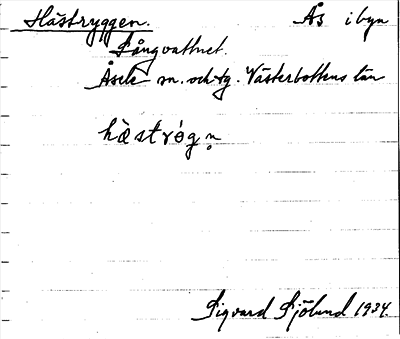 Hästryggen. Ås i byn
Långvattnet.
Åsele sn. och tg. Västerbottens län
hὰstrø̀gn̥
Sigvard Sjölund 1934.